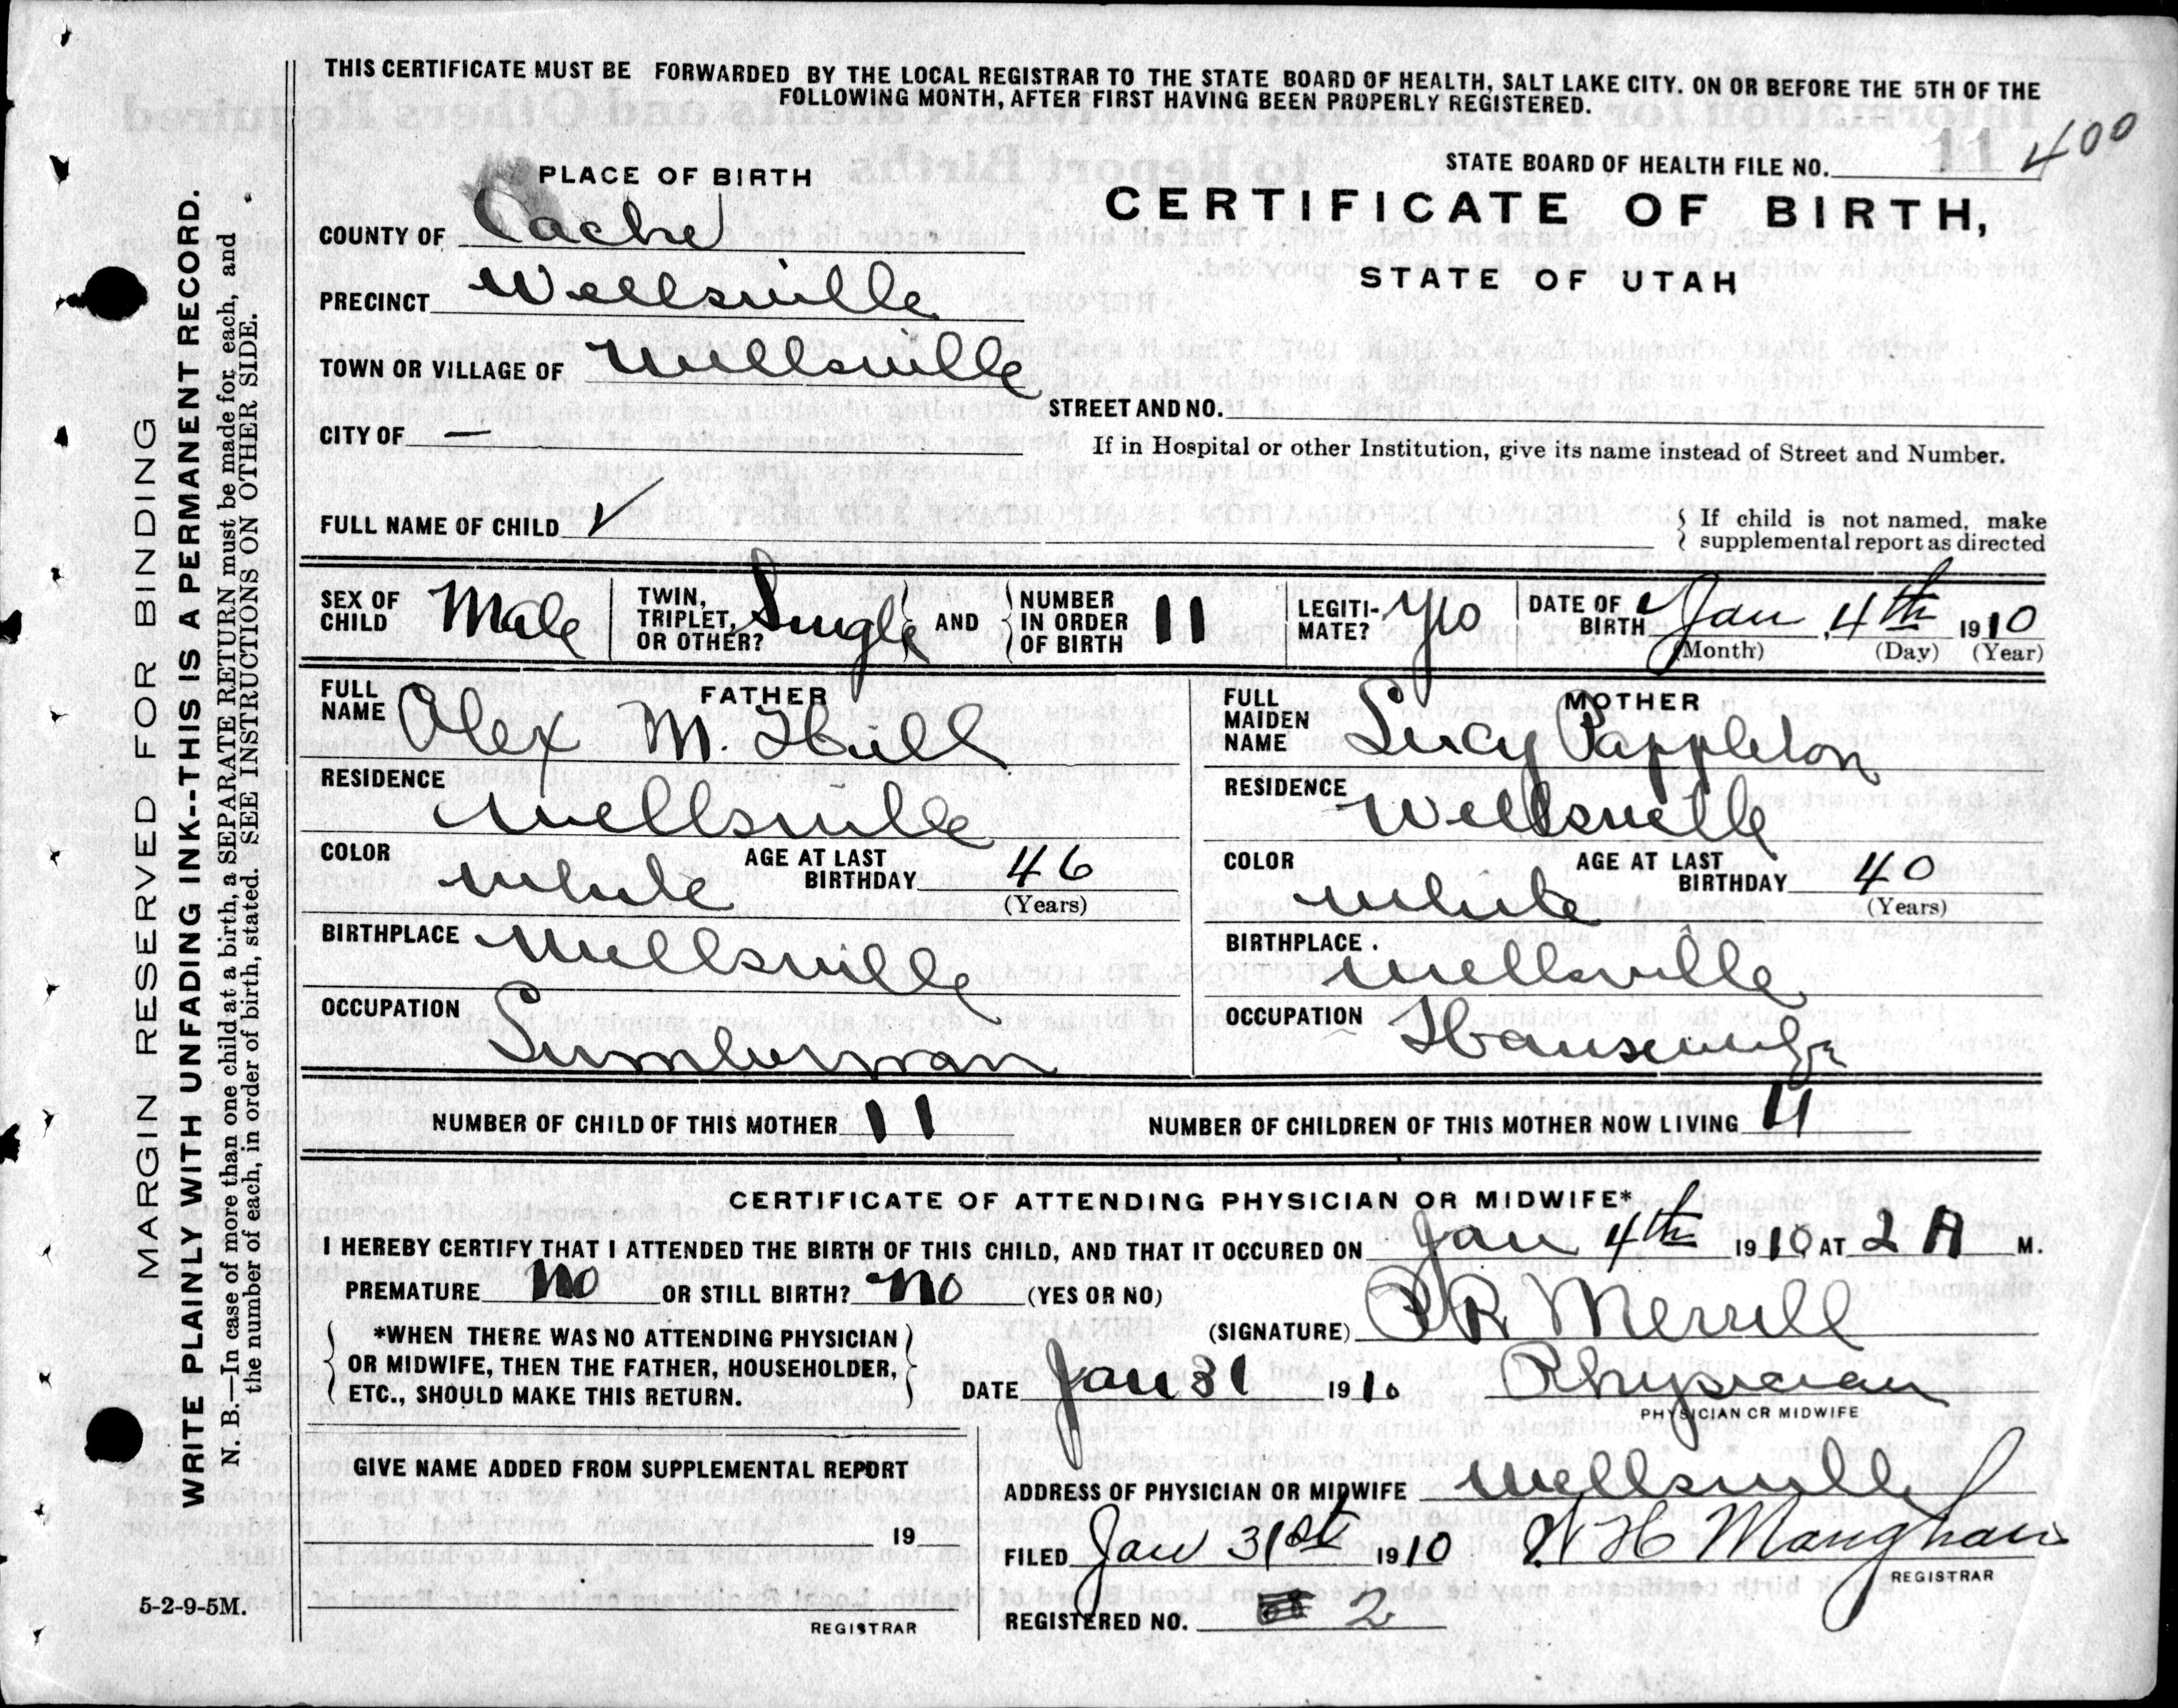 THIS CERTIFICATE MUST BE FORWARDED BY THE LOCAL REGISTRAR TO THE STATE BOARD OF HEALTH, SALT LAKE CITY. ON OR BEFORE THE 5TH OF THE
FOLLOWING MONTH, AFTER FIRST HAVING BEEN PROPERLY REGISTERED.
STATE BOARD OF HEALTH FILE NO. 11 400
PLACE OF BIRTH
CERTIFICATE OF BIRTH,
STATE OF UTAH
COUNTY OF Cache
PRECINCT Wellsville
TOWN OR VILLAGE OF Wellsville
STREET AND NO.
CITY OF —
If in Hospital or other Institution, give its name instead of Street and Number.
FULL NAME OF CHILD
If child is not named, make
supplemental report as directed
SEX OF CHILD Male
TWIN, TRIPLET, OR OTHER? Single
AND
NUMBER IN ORDER OF BIRTH 11
LEGITI-MATE? Yes
DATE OF BIRTH Jan 4th 1910
(Month) (Day) (Year)
FATHER
FULL NAME Alex M. Hill
RESIDENCE Wellsville
COLOR white
AGE AT LAST BIRTHDAY 46
(Years)
BIRTHPLACE Wellsville
OCCUPATION Lumberman
MOTHER
FULL MAIDEN NAME Lucy Pappleton
RESIDENCE Wellsville
COLOR white
AGE AT LAST BIRTHDAY 40
(Years)
BIRTHPLACE. Wellsville
OCCUPATION Housewife
NUMBER OF CHILD OF THIS MOTHER 11
NUMBER OF CHILDREN OF THIS MOTHER NOW LIVING 11
CERTIFICATE OF ATTENDING PHYSICIAN OR MIDWIFE*
I HEREBY CERTIFY THAT I ATTENDED THE BIRTH OF THIS CHILD, AND THAT IT OCCURED ON Jan 4th 1910 AT 2 A M.
PREMATURE No OR STILL BIRTH? No (YES OR NO)
*WHEN THERE WAS NO ATTENDING PHYSICIAN
OR MIDWIFE, THEN THE FATHER, HOUSEHOLDER,
ETC., SHOULD MAKE THIS RETURN.
(SIGNATURE) Merrill
DATE Jan 31 1910 Physician
PHYSICIAN OR MIDWIFE
GIVE NAME ADDED FROM SUPPLEMENTAL REPORT
19
REGISTRAR
ADDRESS OF PHYSICIAN OR MIDWIFE Wellsville
FILED Jan 31st 1910 H Maughan
REGISTRAR
REGISTERED NO. 2
5-2-9-5M.
MARGIN RESERVED FOR BINDING
WRITE PLAINLY WITH UNFADING INK--THIS IS A PERMANENT RECORD.
N. B.—In case of more than one child at a birth, a SEPARATE RETURN must be made for each, and
the number of each, in order of birth, stated. SEE INSTRUCTIONS ON OTHER SIDE.